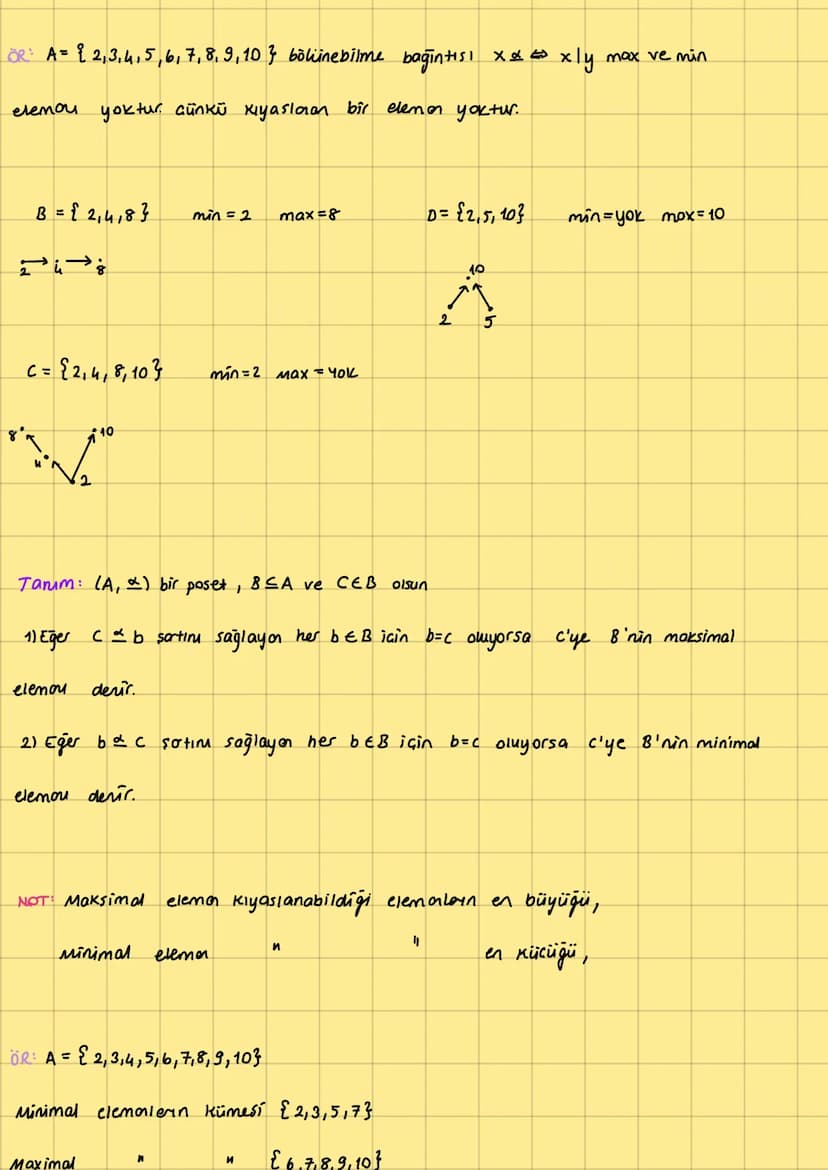 ÖR: A = { 2,3,4,5,6,7,8,9,10 } bölünebilme bağıntısı x ⪯ ⇔ x|y max ve min
elemanı yoktur. Çünkü kıyaslanan bir eleman yoktur.
B = { 2,4,8 } min = 2 max = 8 D = {2,5,10} min = yok max = 10
2 → 4 → 8
10
2 5
C = {2,4,8,10} min = 2 max = yok
8 10
4
2
Tanım: (A, ⪯) bir poset, B ⊆ A ve C ∈ B olsun
1) Eğer c ⪯ b şartını sağlayan her b ∈ B için b=c oluyorsa c'ye B'nin maksimal
elemanı denir.
2) Eğer b ⪯ c şartını sağlayan her b ∈ B için b=c oluyorsa c'ye B'nin minimal
elemanı denir.
NOT: Maksimal eleman kıyaslanabildiği elemanların en büyüğü,
Minimal eleman " " en küçüğü,
ÖR: A = { 2,3,4,5,6,7,8,9,10}
Minimal elemanların kümesi {2,3,5,7}
Maximal " " {6,7,8,9,10}